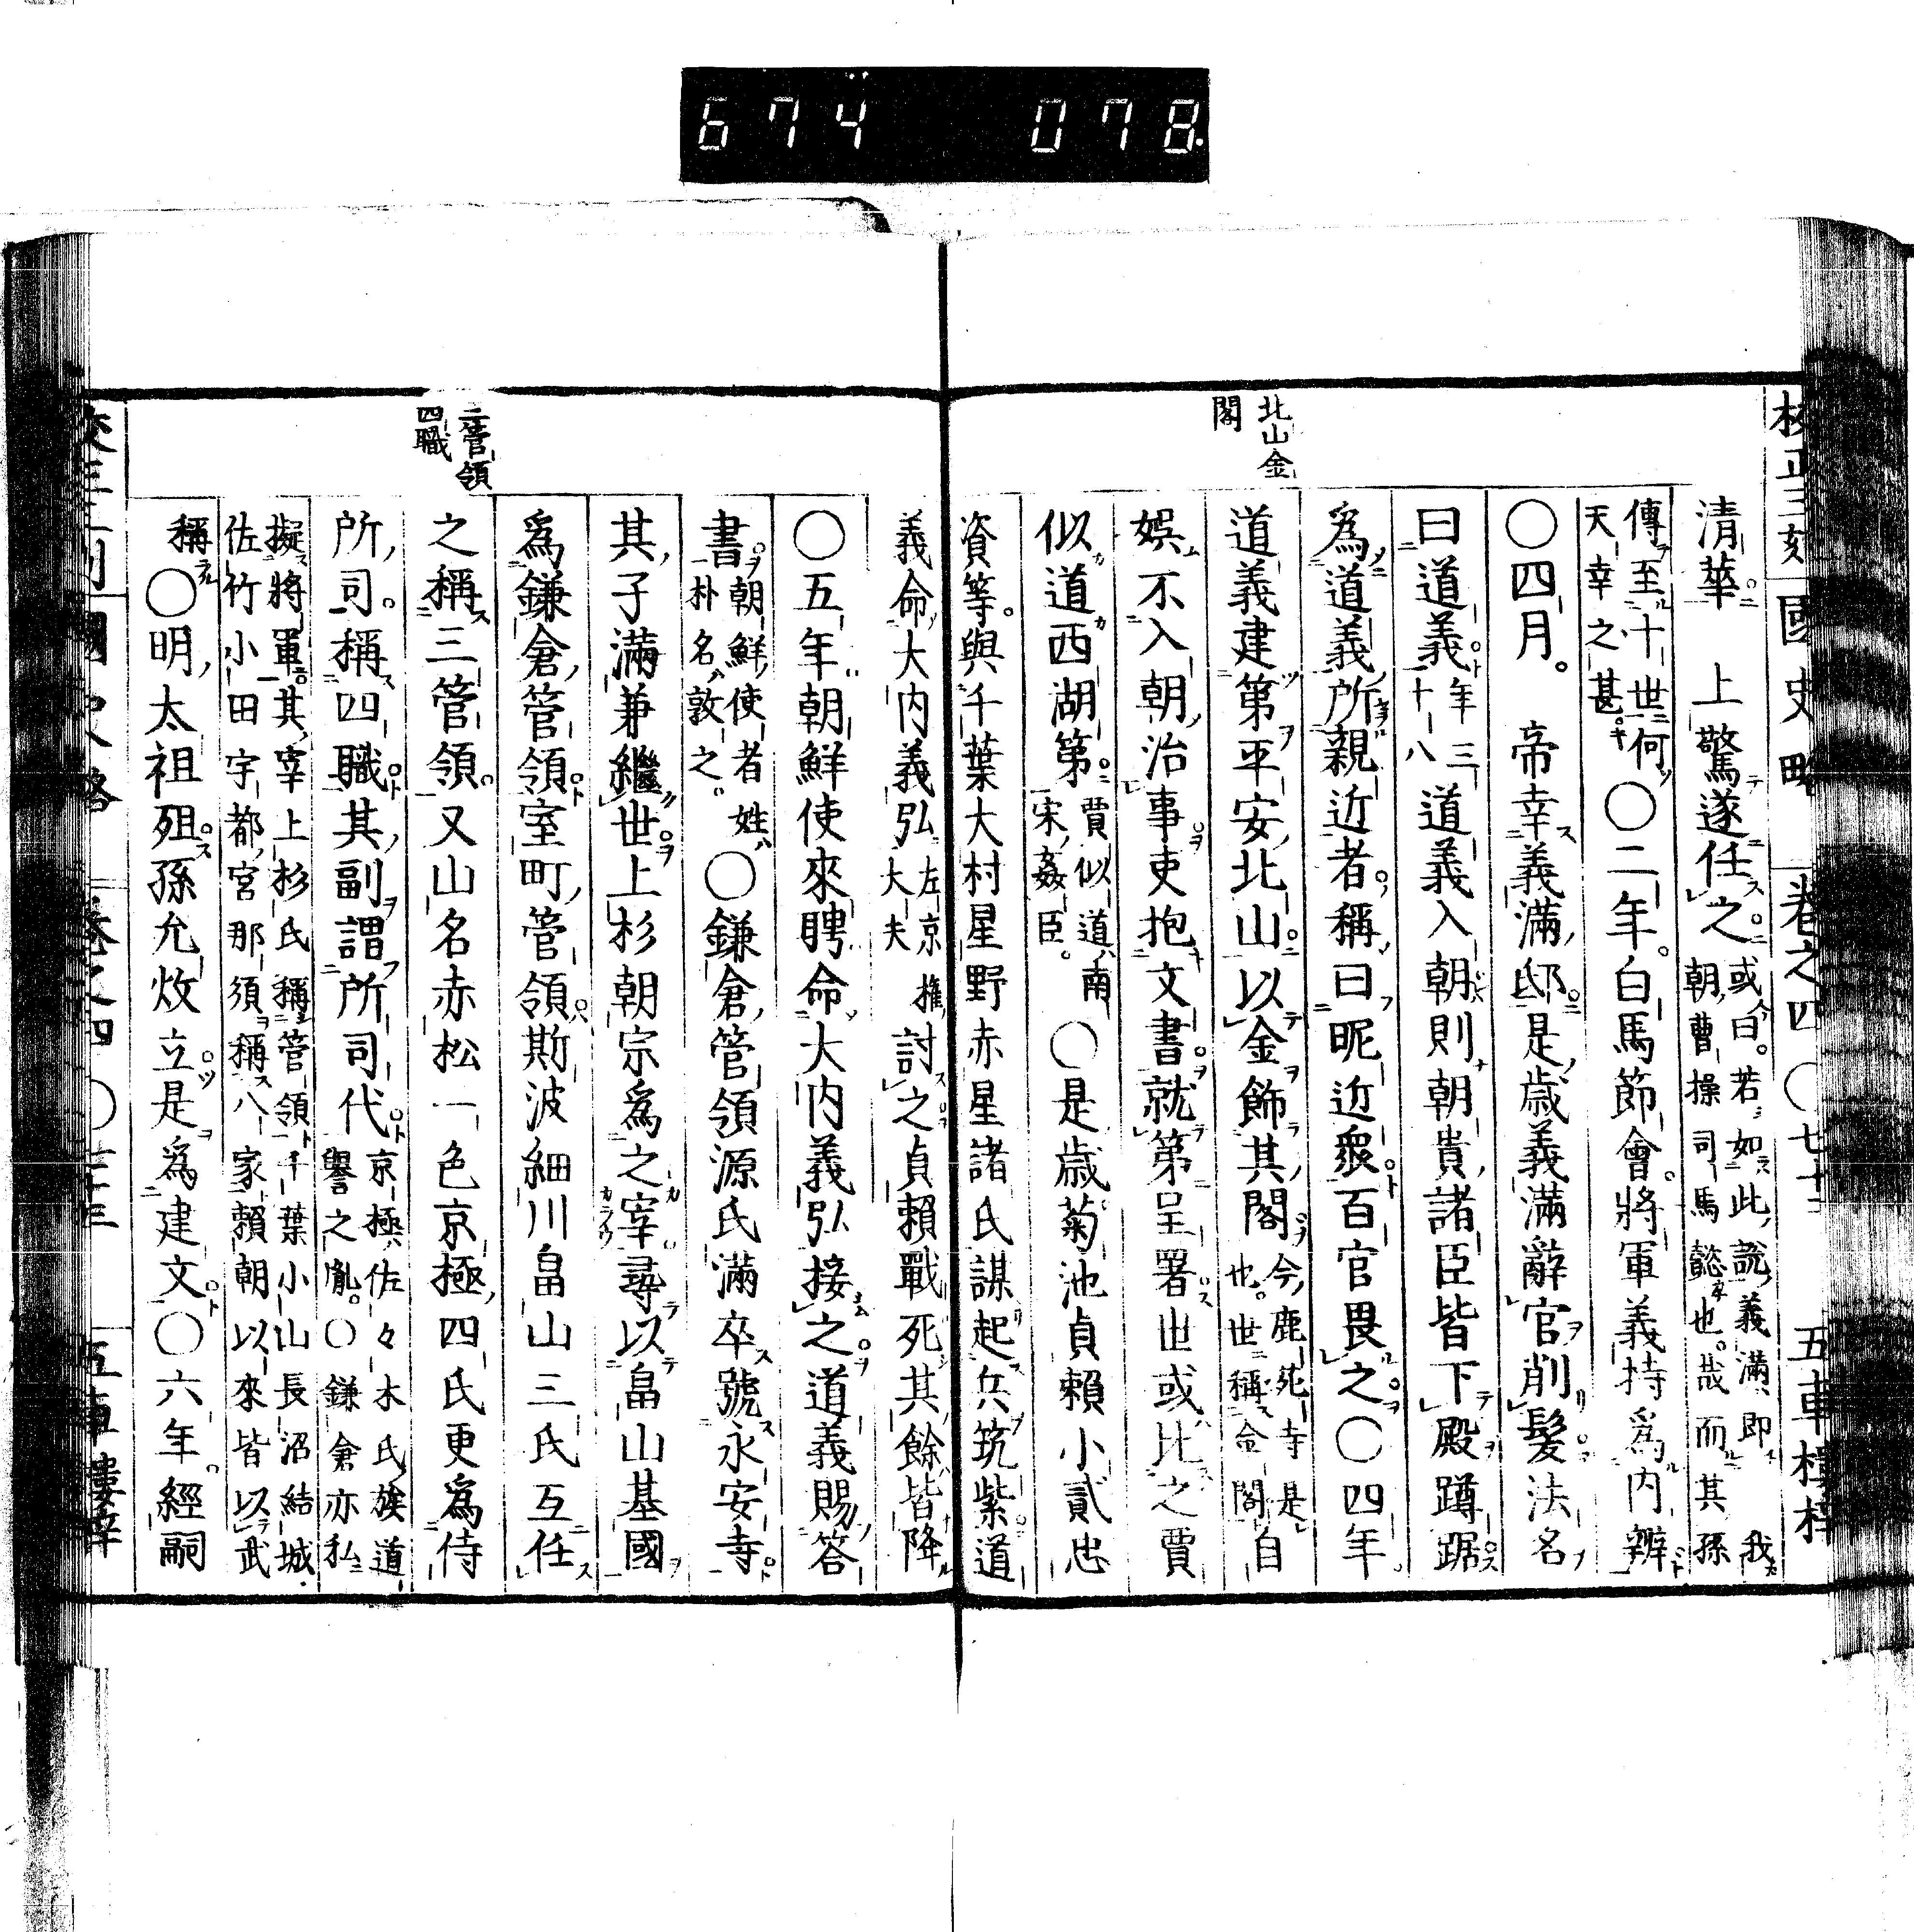 674 078
校正三刻國史略 卷之四 〇七十三 五車樓梓
北山金
閣
清華 上驚遂任之 或曰若如此說義滿即我
朝曹操司馬懿也哉而其孫
傳至十世何
天幸之甚 〇二年白馬節會將軍義持爲內辨
〇四月 帝幸義滿邸是歲義滿辭官削髮法名
曰道義 年三
十八 道義入朝則朝貴諸臣皆下殿蹲踞
爲道義所親近者稱曰昵近衆百官畏之〇四年
道義建第平安北山以金飾其閣 今鹿苑寺是
也世稱金閣 自
娛不入朝治事吏抱文書就第呈署世或比之賈
似道西湖第 賈似道南
宋姦臣 〇是歲菊池貞賴小貳忠
資等與千葉大村星野赤星諸氏謀起兵筑紫道
義命大內義弘 左京權
大夫 討之貞賴戰死其餘皆降
〇五年朝鮮使來聘命大內義弘接之道義賜答
書 朝鮮使者姓
朴名敦之 〇鎌倉管領源氏滿卒號永安寺
其子滿兼繼世上杉朝宗爲之宰尋以畠山基國
爲鎌倉管領室町管領斯波細川畠山三氏互任
三管領
四職
之稱三管領又山名赤松一色京極四氏更爲侍
所司稱四職其副謂所司代 京極佐々木氏族道
譽之胤〇鎌倉亦私
擬將軍其宰上杉氏稱管領千葉小山長沼結城
佐竹小田宇都宮那須稱八家賴朝以來皆以武
稱〇明太祖殂孫允炆立是爲建文〇六年經嗣
校正三刻國史略 卷之四 〇 五車樓梓